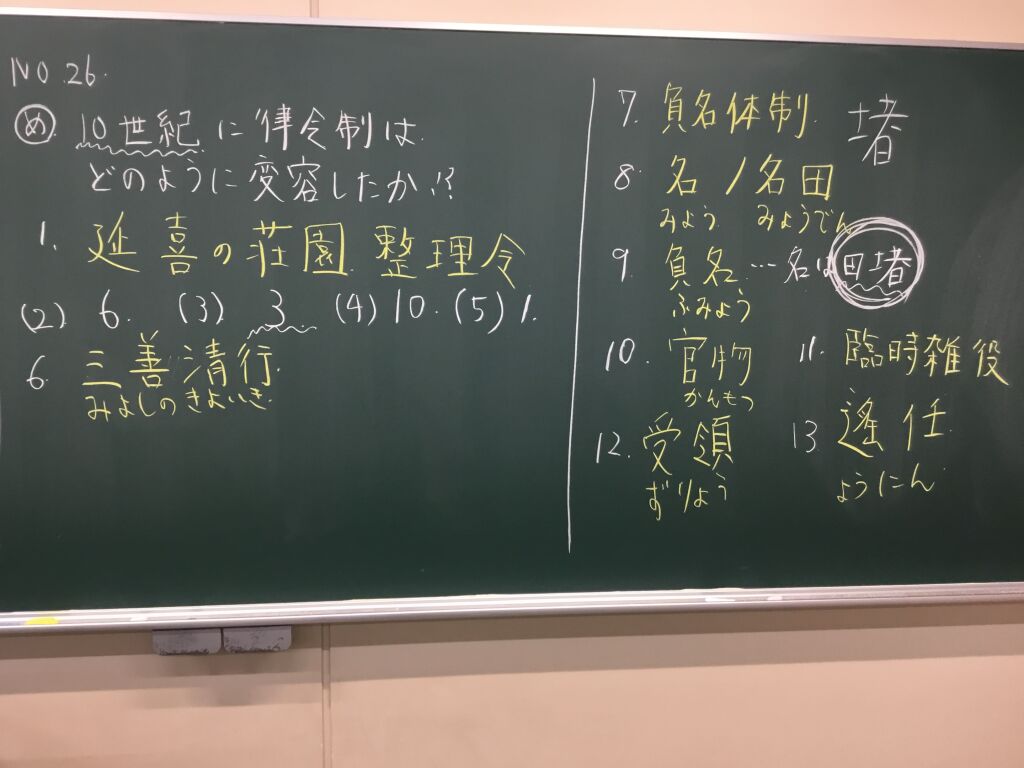 NO 26.
め 10世紀に律令制は
どのように変容したか!?
1. 延喜の荘園整理令
(2) 6. (3) 3 (4) 10. (5) 1.
6. 三善清行
みよしのきよいき
7. 負名体制 堵
8 名/名田
みょう みょうでん
9 負名…名は田堵
ふみょう
10. 官物 11. 臨時雑役
かんもつ
12. 受領 13 遙任
ずりょう ようにん